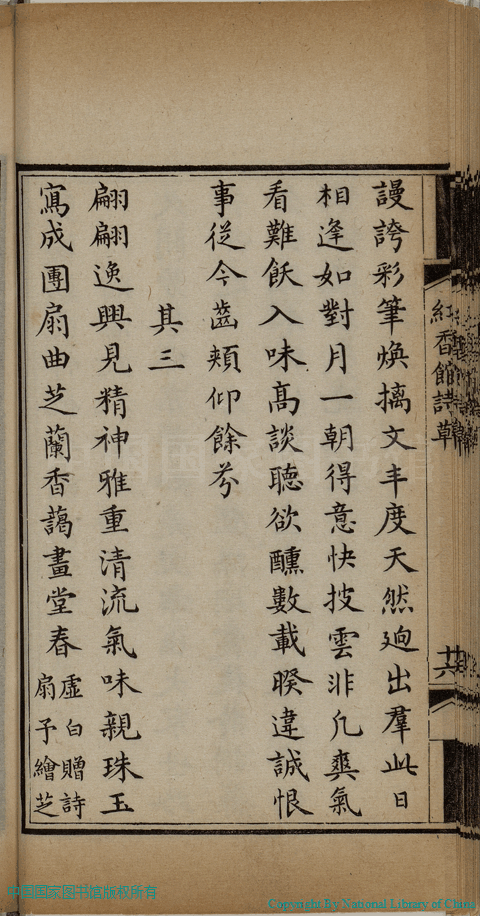 紅香館詩草
十六
謾誇彩筆煥摛文丰度天然迥出羣此日
相逢如對月一朝得意快披雲非凡爽氣
看難飫入味高談聽欲醺數載睽違誠恨
事從今齒頰仰餘芬
其三
翩翩逸興見精神雅重清流氣味親珠玉
寫成團扇曲芝蘭香藹畫堂春虛白贈詩
扇予繪芝
中国国家图书馆版权所有
Copyright By National Library of China